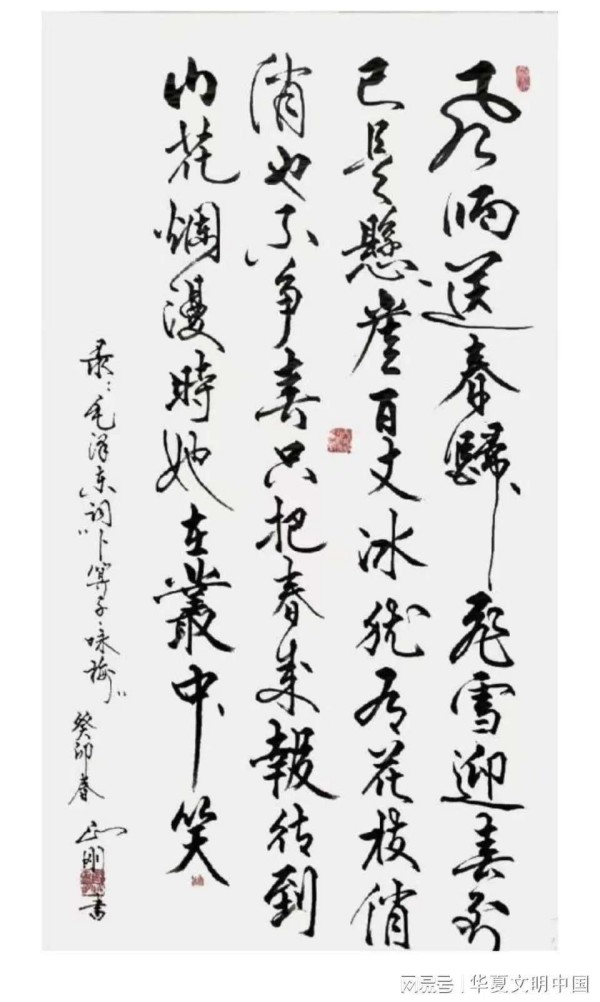 風雨送春歸飛雪迎春到
已是懸崖百丈冰犹有花枝俏
俏也不争春只把春来報待到
山花爛漫時她在叢中笑
录：毛泽东词“卜算子·咏梅” 癸卯春 正刚书
搜狐号|华夏文明中国